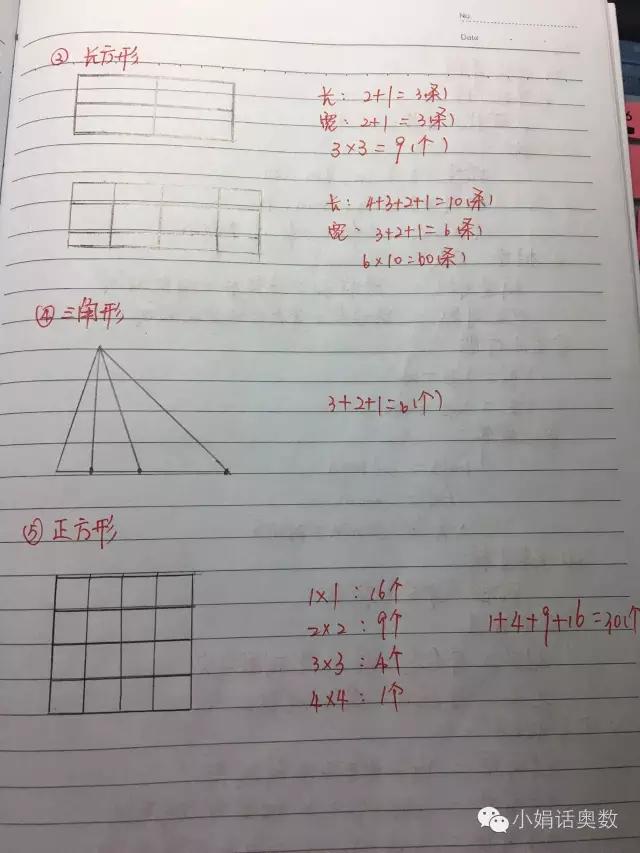 No.
Date
③ 长方形
长：2+1=3(条)
宽：2+1=3(条)
3×3=9(个)
长：4+3+2+1=10(条)
宽：3+2+1=6(条)
6×10=60(条)
④ 三角形
3+2+1=6(个)
⑤ 正方形
1×1：16个
2×2：9个
3×3：4个
4×4：1个
1+4+9+16=30(个
小娟话奥数